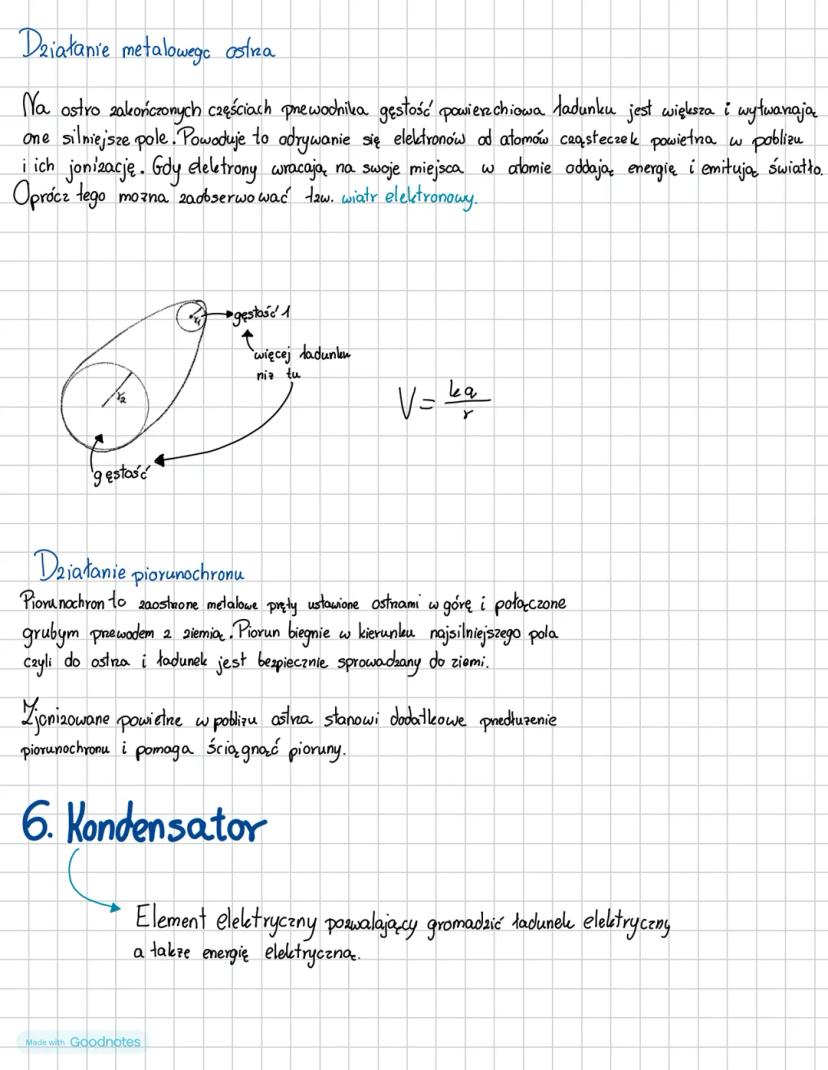 Działanie metalowego ostrza
Na ostro zakończonych częściach przewodnika gęstość powierzchiowa ładunku jest większa i wytwarzają
one silniejsze pole. Powoduje to odrywanie się elektronów od atomów cząsteczek powietrza w pobliżu
i ich jonizację. Gdy elektrony wracają na swoje miejsca w atomie oddają energię i emitują światło.
Oprócz tego można zaobserwować tzw. wiatr elektronowy.
r₁
gęstość 1
więcej ładunku
niż tu
r₂
V = kq/r
gęstość
Działanie piorunochronu
Piorunochron to zaostrzone metalowe pręty ustawione ostrzami w górę i połączone
grubym przewodem z ziemią. Piorun biegnie w kierunku najsilniejszego pola
czyli do ostrza i ładunek jest bezpiecznie sprowadzany do ziemi.
Zjonizowane powietrze w pobliżu ostrza stanowi dodatkowe przedłużenie
piorunochronu i pomaga ściągnąć pioruny.
6. Kondensator
Element elektryczny pozwalający gromadzić ładunek elektryczny
a także energię elektryczną.
Made with Goodnotes